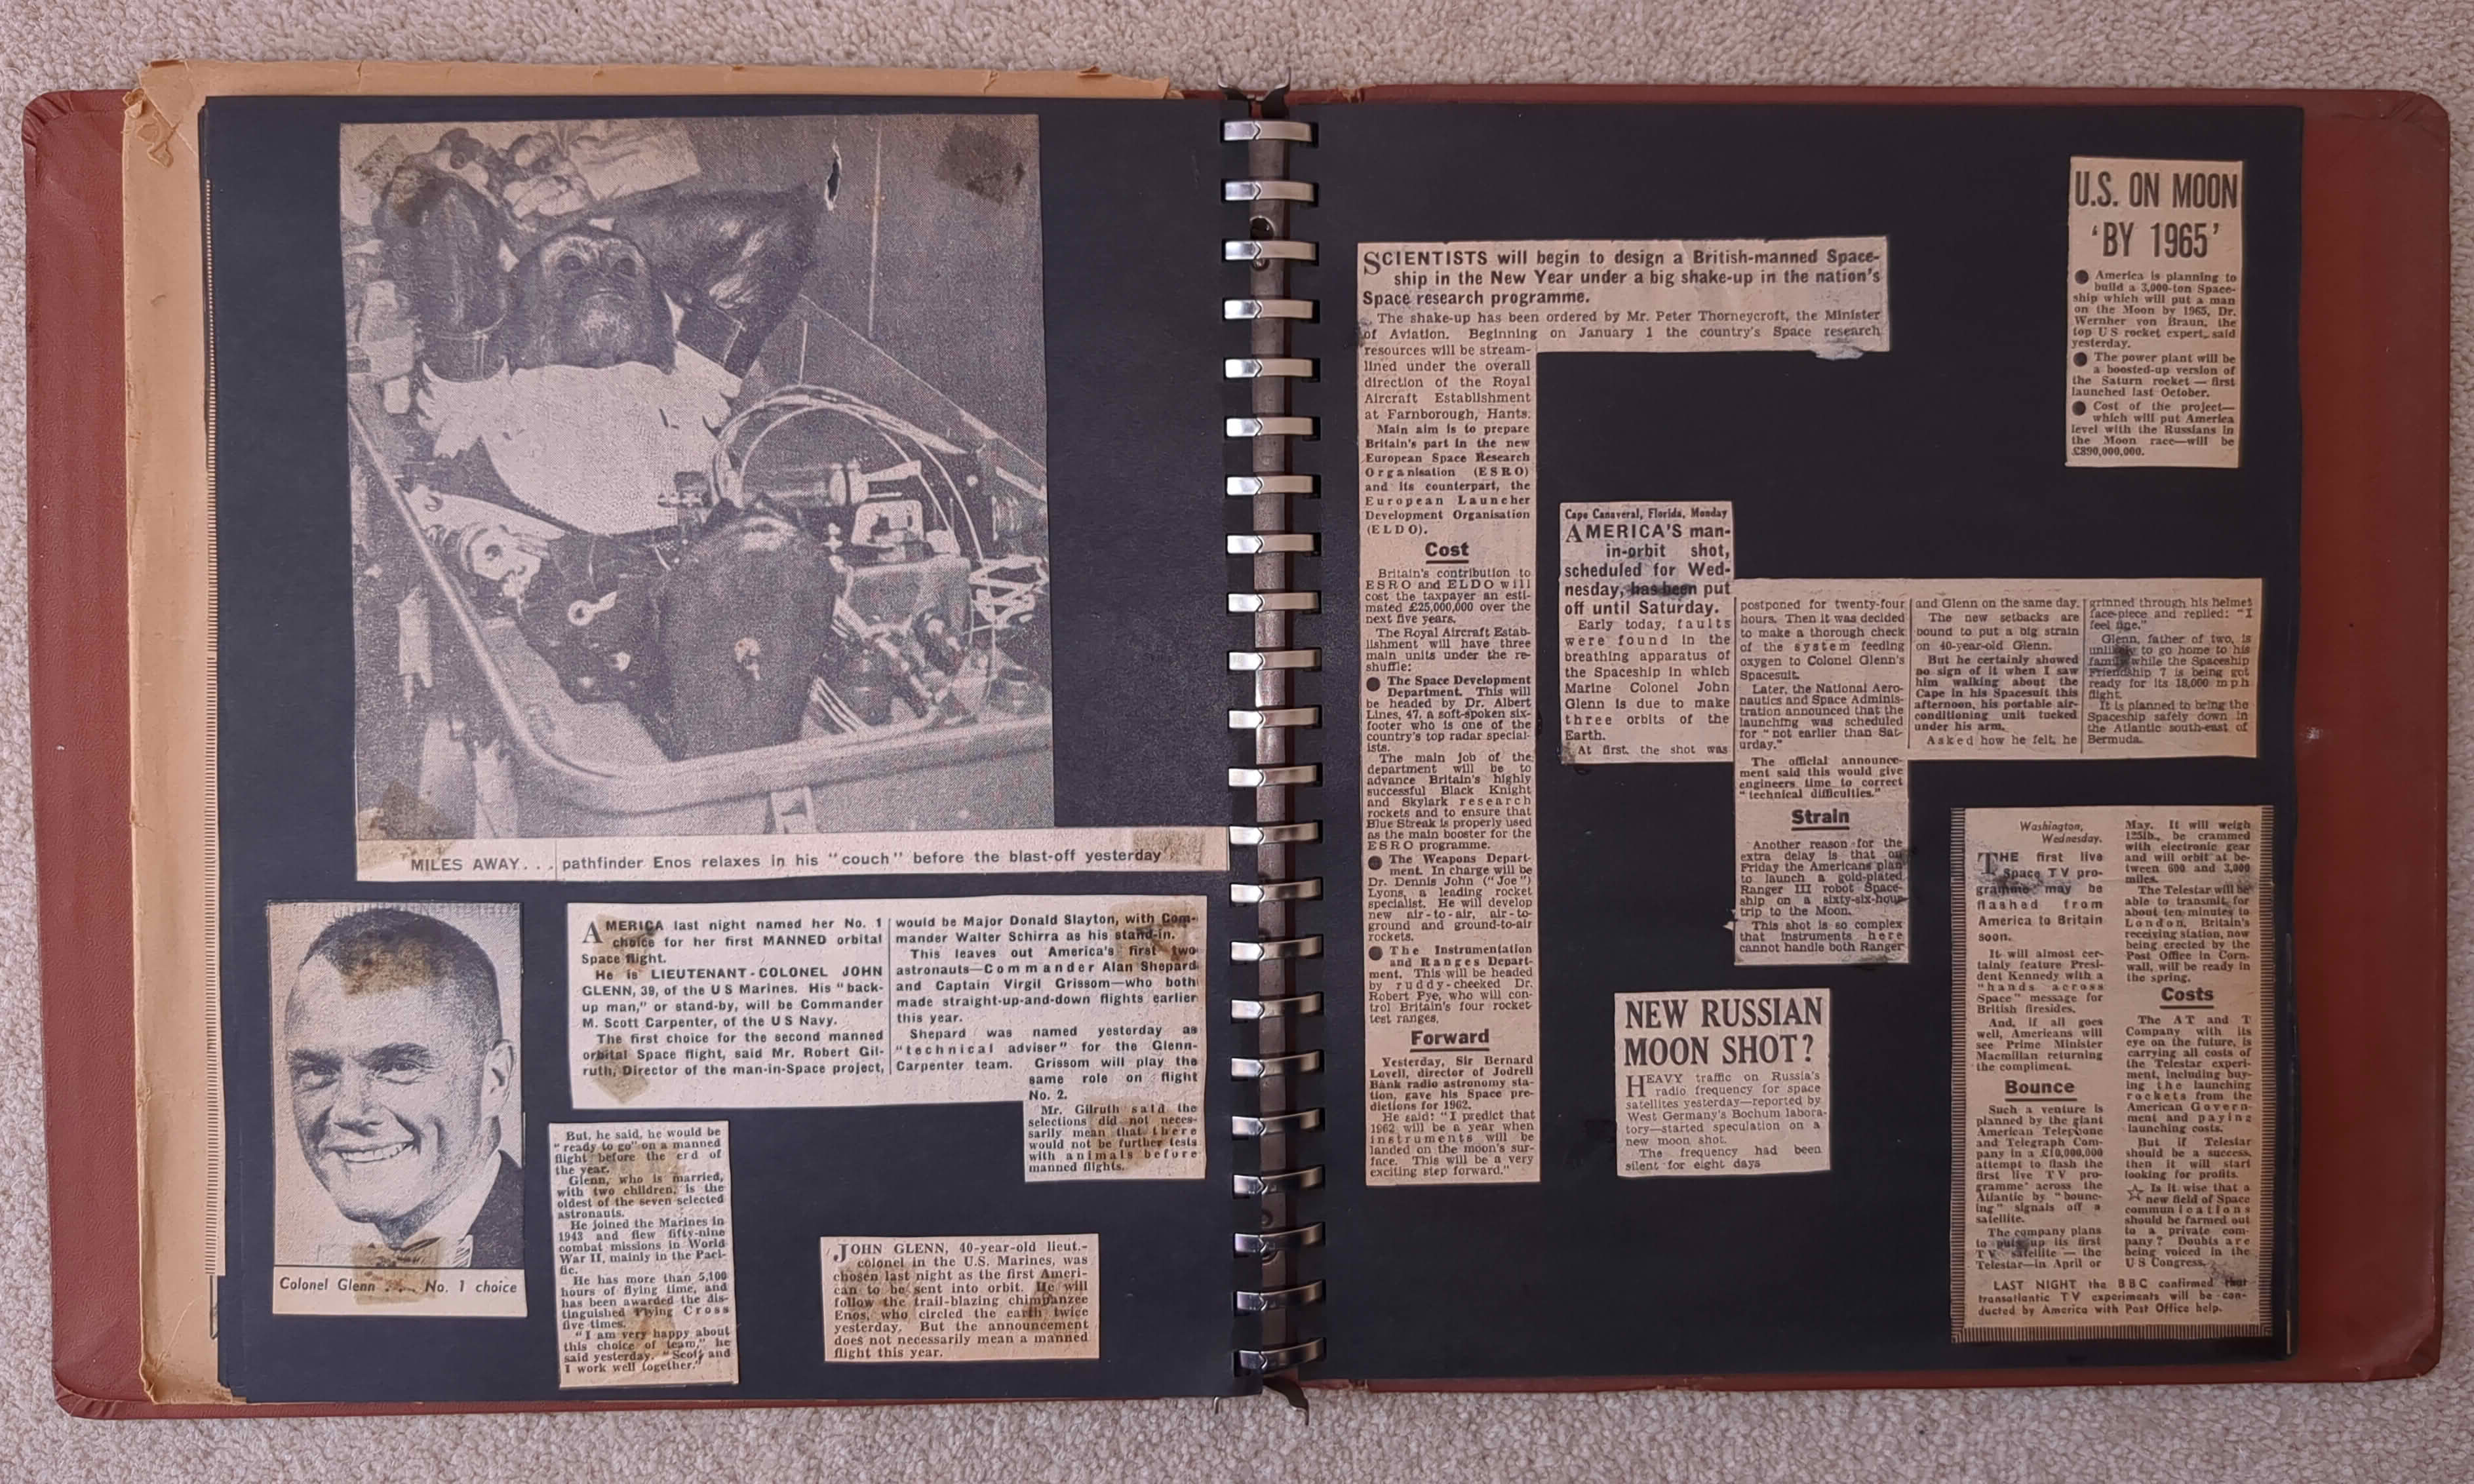 MILES AWAY. . . pathfinder Enos relaxes in his "couch" before the blast-off yesterday
Colonel Glenn . . . No. 1 choice
AMERICA last night named her No. 1
choice for her first MANNED orbital
Space flight.
He is LIEUTENANT-COLONEL JOHN
GLENN, 39, of the US Marines. His "back-
up man," or stand-by, will be Commander
M. Scott Carpenter, of the US Navy.
The first choice for the second manned
orbital Space flight, said Mr. Robert Gil-
ruth, Director of the man-in-Space project,
would be Major Donald Slayton, with Com-
mander Walter Schirra as his stand-in.
This leaves out America's first two
astronauts—Commander Alan Shepard
and Captain Virgil Grissom—who both
made straight-up-and-down flights earlier
this year.
Shepard was named yesterday as
"technical adviser" for the Glenn-
Carpenter team. Grissom will play the
same role on flight
No. 2.
Mr. Gilruth said the
selections did not neces-
sarily mean that there
would not be further tests
with animals before
manned flights.
But, he said, he would be
"ready to go" on a manned
flight before the end of
the year.
Glenn, who is married,
with two children, is the
oldest of the seven selected
astronauts.
He joined the Marines in
1943 and flew fifty-nine
combat missions in World
War II, mainly in the Paci-
fic.
He has more than 5,100
hours of flying time, and
has been awarded the dis-
tinguished Flying Cross
five times.
"I am very happy about
this choice of team," he
said yesterday. "Scott and
I work well together."
JOHN GLENN, 40-year-old lieut.-
colonel in the U.S. Marines, was
chosen last night as the first Ameri-
can to be sent into orbit. He will
follow the trail-blazing chimpanzee
Enos, who circled the earth twice
yesterday. But the announcement
does not necessarily mean a manned
flight this year.
SCIENTISTS will begin to design a British-manned Space-
ship in the New Year under a big shake-up in the nation's
Space research programme.
The shake-up has been ordered by Mr. Peter Thorneycroft, the Minister
of Aviation. Beginning on January 1 the country's Space research
resources will be stream-
lined under the overall
direction of the Royal
Aircraft Establishment
at Farnborough, Hants.
Main aim is to prepare
Britain's part in the new
European Space Research
Organisation (ESRO)
and its counterpart, the
European Launcher
Development Organisation
(ELDO).
Cost
Britain's contribution to
ESRO and ELDO will
cost the taxpayer an esti-
mated £25,000,000 over the
next five years.
The Royal Aircraft Estab-
lishment will have three
main units under the re-
shuffle:
● The Space Development
Department. This will
be headed by Dr. Albert
Lines, 47, a soft-spoken six-
footer who is one of the
country's top radar special-
ists.
The main job of the
department will be to
advance Britain's highly
successful Black Knight
and Skylark research
rockets and to ensure that
Blue Streak is properly used
as the main booster for the
ESRO programme.
● The Weapons Depart-
ment. In charge will be
Dr. Dennis John ("Joe")
Lyons, a leading rocket
specialist. He will develop
new air-to-air, air-to-
ground and ground-to-air
rockets.
● The Instrumentation
and Ranges Depart-
ment. This will be headed
by ruddy-cheeked Dr.
Robert Pye, who will con-
trol Britain's four rocket
test ranges.
Forward
Yesterday, Sir Bernard
Lovell, director of Jodrell
Bank radio astronomy sta-
tion, gave his Space pre-
dictions for 1962.
He said: "I predict that
1962 will be a year when
instruments will be
landed on the moon's sur-
face. This will be a very
exciting step forward."
U.S. ON MOON
'BY 1965'
● America is planning to
build a 3,000-ton Space-
ship which will put a man
on the Moon by 1965, Dr.
Wernher von Braun, the
top US rocket expert, said
yesterday.
● The power plant will be
a boosted-up version of
the Saturn rocket — first
launched last October.
● Cost of the project—
which will put America
level with the Russians in
the Moon race—will be
£890,000,000.
Cape Canaveral, Florida, Monday
AMERICA'S man-
in-orbit shot,
scheduled for Wed-
nesday, has been put
off until Saturday.
Early today, faults
were found in the
breathing apparatus of
the Spaceship in which
Marine Colonel John
Glenn is due to make
three orbits of the
Earth.
At first, the shot was
postponed for twenty-four
hours. Then it was decided
to make a thorough check
of the system feeding
oxygen to Colonel Glenn's
Spacesuit.
Later, the National Aero-
nautics and Space Adminis-
tration announced that the
launching was scheduled
for "not earlier than Sat-
urday."
The official announce-
ment said this would give
engineers time to correct
"technical difficulties."
Strain
Another reason for the
extra delay is that on
Friday the Americans plan
to launch a gold-plated
Ranger III robot Space-
ship on a sixty-six-hour
trip to the Moon.
This shot is so complex
that instruments here
cannot handle both Ranger
and Glenn on the same day.
The new setbacks are
bound to put a big strain
on 40-year-old Glenn.
But he certainly showed
no sign of it when I saw
him walking about the
Cape in his Spacesuit this
afternoon, his portable air-
conditioning unit tucked
under his arm.
Asked how he felt, he
grinned through his helmet
face-piece and replied: "I
feel fine."
Glenn, father of two, is
unlikely to go home to his
family while the Spaceship
Friendship 7 is being got
ready for its 18,000 mph
flight.
It is planned to bring the
Spaceship safely down in
the Atlantic south-east of
Bermuda.
NEW RUSSIAN
MOON SHOT?
HEAVY traffic on Russia's
radio frequency for space
satellites yesterday—reported by
West Germany's Bochum labora-
tory—started speculation on a
new moon shot.
The frequency had been
silent for eight days
Washington,
Wednesday.
THE first live
Space TV pro-
gramme may be
flashed from
America to Britain
soon.
It will almost cer-
tainly feature Presi-
dent Kennedy with a
"hands across
Space" message for
British firesides.
And, if all goes
well, Americans will
see Prime Minister
Macmillan returning
the compliment.
Bounce
Such a venture is
planned by the giant
American Telephone
and Telegraph Com-
pany in a £10,000,000
attempt to flash the
first live TV pro-
gramme across the
Atlantic by "bounc-
ing" signals off a
satellite.
The company plans
to puts up its first
TV satellite — the
Telestar—in April or
May. It will weigh
125lb., be crammed
with electronic gear
and will orbit at be-
tween 600 and 3,000
miles.
The Telestar will be
able to transmit for
about ten minutes to
London. Britain's
receiving station, now
being erected by the
Post Office in Corn-
wall, will be ready in
the spring.
Costs
The AT and T
Company with its
eye on the future, is
carrying all costs of
the Telestar experi-
ment, including buy-
ing the launching
rockets from the
American Govern-
ment and paying
launching costs.
But if Telestar
should be a success,
then it will start
looking for profits.
☆ Is it wise that a
new field of Space
communications
should be farmed out
to a private com-
pany? Doubts are
being voiced in the
US Congress.
LAST NIGHT the BBC confirmed that
transatlantic TV experiments will be con-
ducted by America with Post Office help.